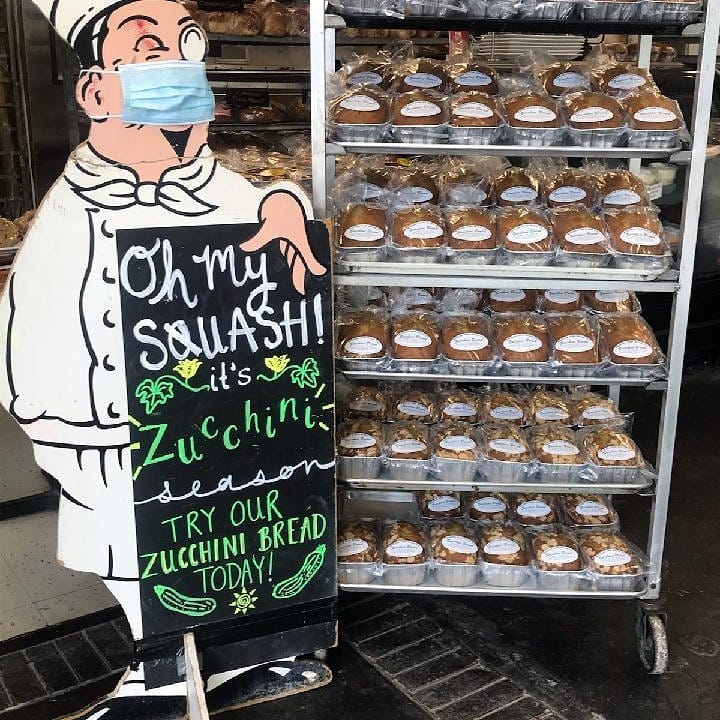 Oh My
SQUASH!
it's
Zucchini
season
TRY OUR
ZUCCHINI BREAD
TODAY!